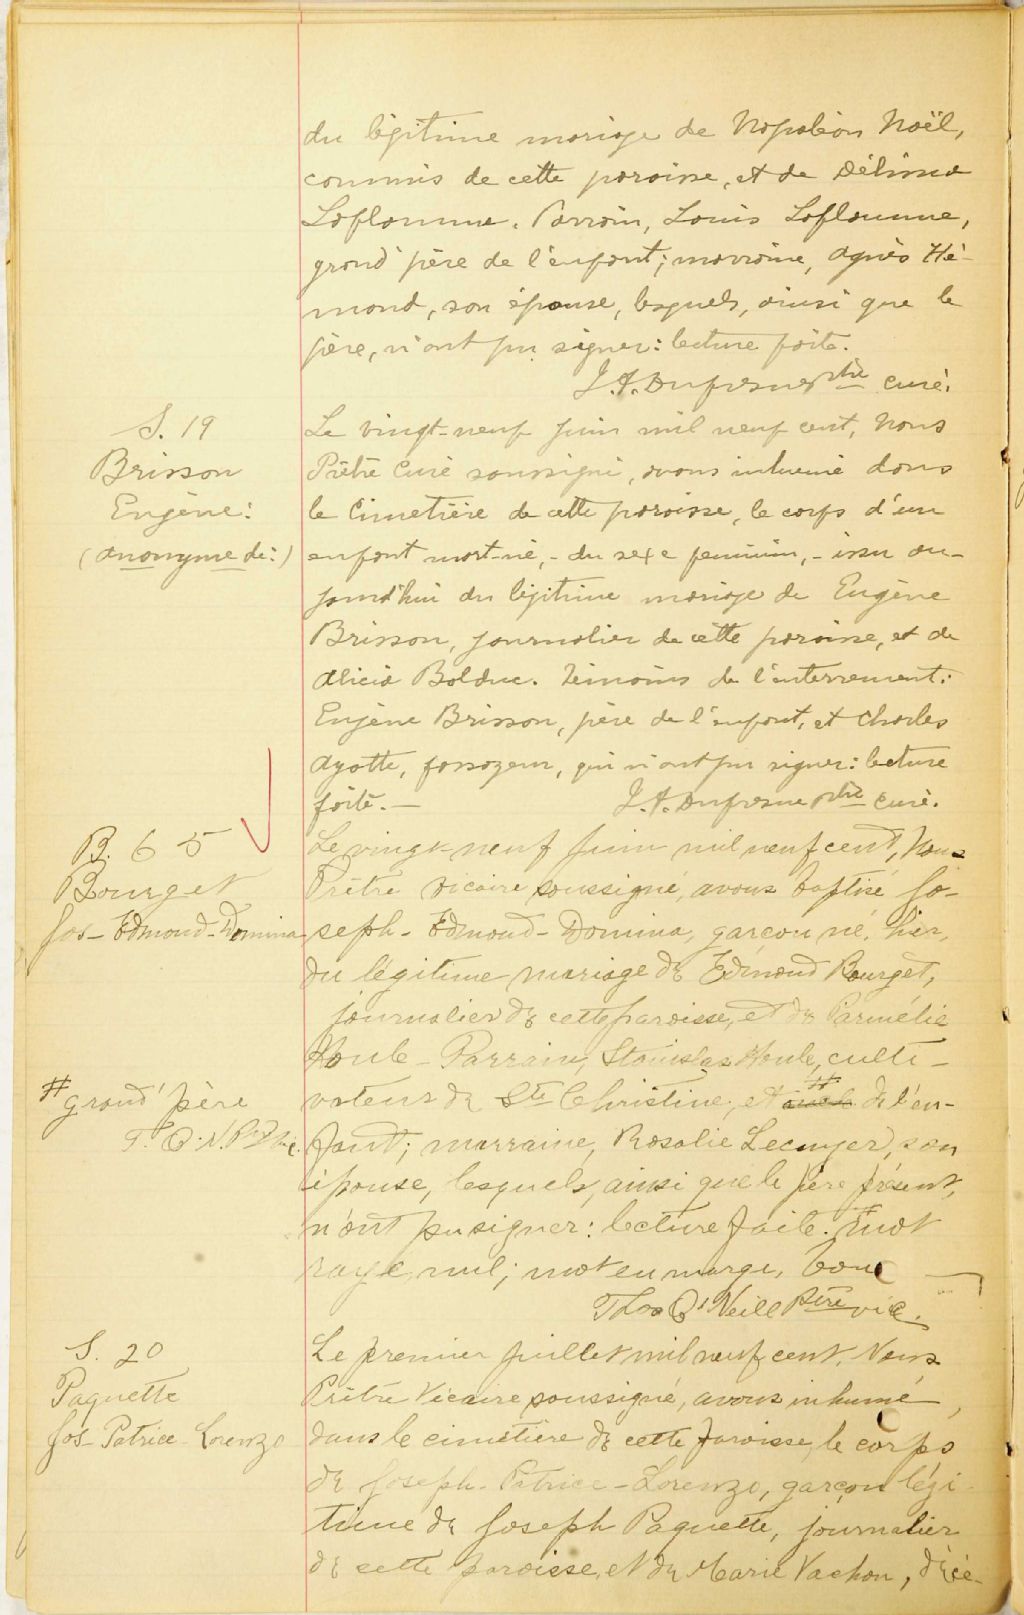 du légitime mariage de Napoléon Noël,
commis de cette paroisse, et de Délima
Laflamme. Parrain, Louis Laflamme,
grand'père de l'enfant; marraine, Agnès Hé-
mond, son épouse, lesquels, ainsi que le
père, n'ont pu signer: lecture faite.
J. A. Dufresne ptre curé.
S. 19
Brisson
Eugène:
(anonyme de:)
Le vingt-neuf juin mil neuf cent, Nous
Prêtre Curé soussigné, avons inhumé dans
le Cimetière de cette paroisse, le corps d'un
enfant mort-né, - du sexe féminin, - issu au-
jourd'hui du légitime mariage de Eugène
Brisson, journalier de cette paroisse, et de
Alicia Bolduc. Témoins de l'enterrement:
Eugène Brisson, père de l'enfant, et Charles
Ayotte, fossoyeur, qui n'ont pu signer: lecture
faite. —
J. A. Dufresne ptre curé.
B. 65
Bourget
Jos-Edmond-Domina
Le vingt-neuf juin mil neuf cent, Nous
Prêtre vicaire soussigné, avons baptisé Jo-
seph-Edmond-Domina, garçon né, hier,
du légitime mariage de Edmond Bourget,
journalier de cette paroisse, et de Parmélie
Houle - Parrain, Stanislas Houle, culti-
vateur de Ste Christine, et # de l'en-
# grand'père
T. O'N. Ptre vic.
fant; marraine, Rosalie Lecuyer, son
épouse, lesquels, ainsi que le père présent,
n'ont pu signer: lecture faite. # mot
rayé nul; mot en marge, bon
Thos O'Neill Ptre vic.
S. 20
Paquette
Jos-Patrice-Lorenzo
Le premier juillet mil neuf cent, Nous
Prêtre Vicaire soussigné, avons inhumé,
dans le cimetière de cette paroisse, le corps
de Joseph-Patrice-Lorenzo, garçon légi-
time de Joseph Paquette, journalier
de cette paroisse, et de Marie Vachon, décé-